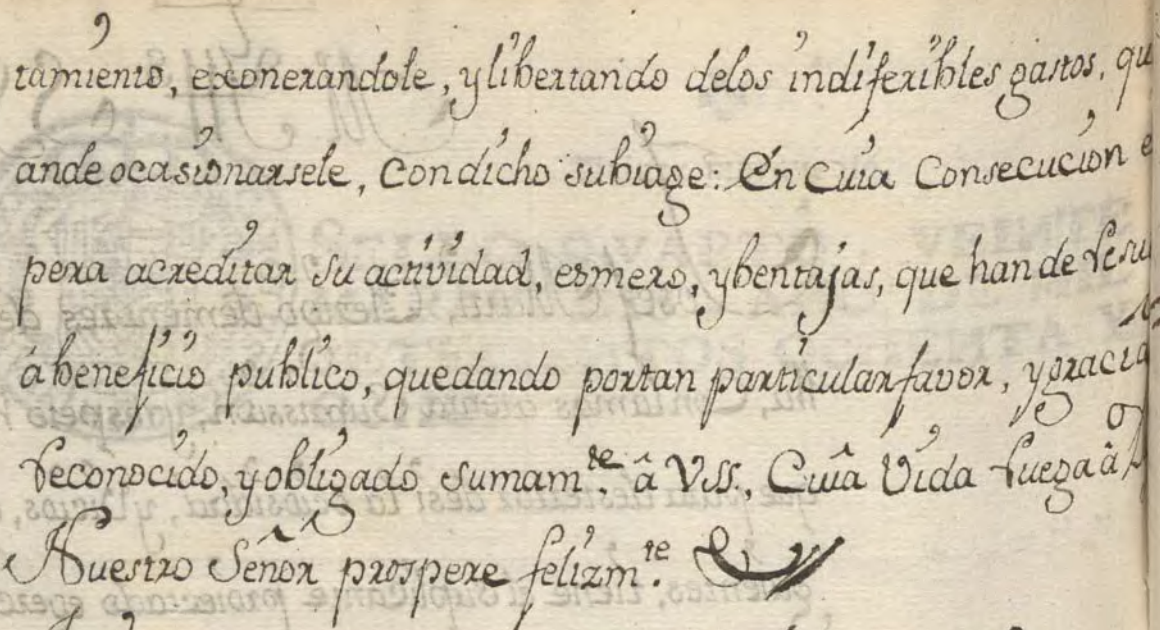 tamiento, exonerandole, y libertando delos indiferibles gastos, qu
ande ocasionarsele, Condicho subiage: En Cuia Consecucion e
pera acreditar su actividad, esmero, y bentajas, que han de resu
á beneficio publico, quedando portan particular favor, y gracia
reconocido, y obligado sumam.te â VSS., Cuiâ Vida ruega â
Nuestro Señor prospere felizm.te